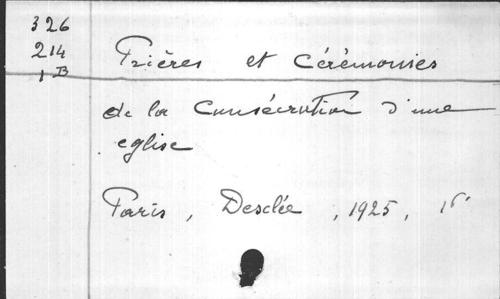 326
214
1 B
Prières et Cérémonies
de la Consécration d'une
eglise
Paris, Desclée, 1925, 16°